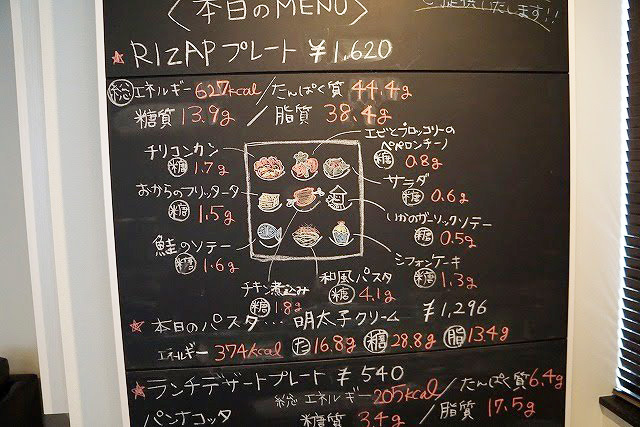 〈本日のMENU〉
ご提供いたします!!
★RIZAPプレート ¥1,620
総エネルギー627kcal/たんぱく質44.4g
糖質13.9g/脂質38.4g
チリコンカン
糖1.7g
エビとブロッコリーの
ペペロンチーノ
糖0.8g
おからのフリッタータ
糖1.5g
サラダ
糖0.6g
いかのガーリックソテー
糖0.5g
鮭のソテー
糖1.6g
シフォンケーキ
糖1.3g
チキン煮込み
糖1.8g
和風パスタ
糖4.1g
★本日のパスタ…明太子クリーム ¥1,296
エネルギー374kcal た16.8g 糖28.8g 脂13.4g
★ランチデザートプレート ¥540
総エネルギー205kcal/たんぱく質6.4g
パンナコッタ 糖質3.4g/脂質17.5g